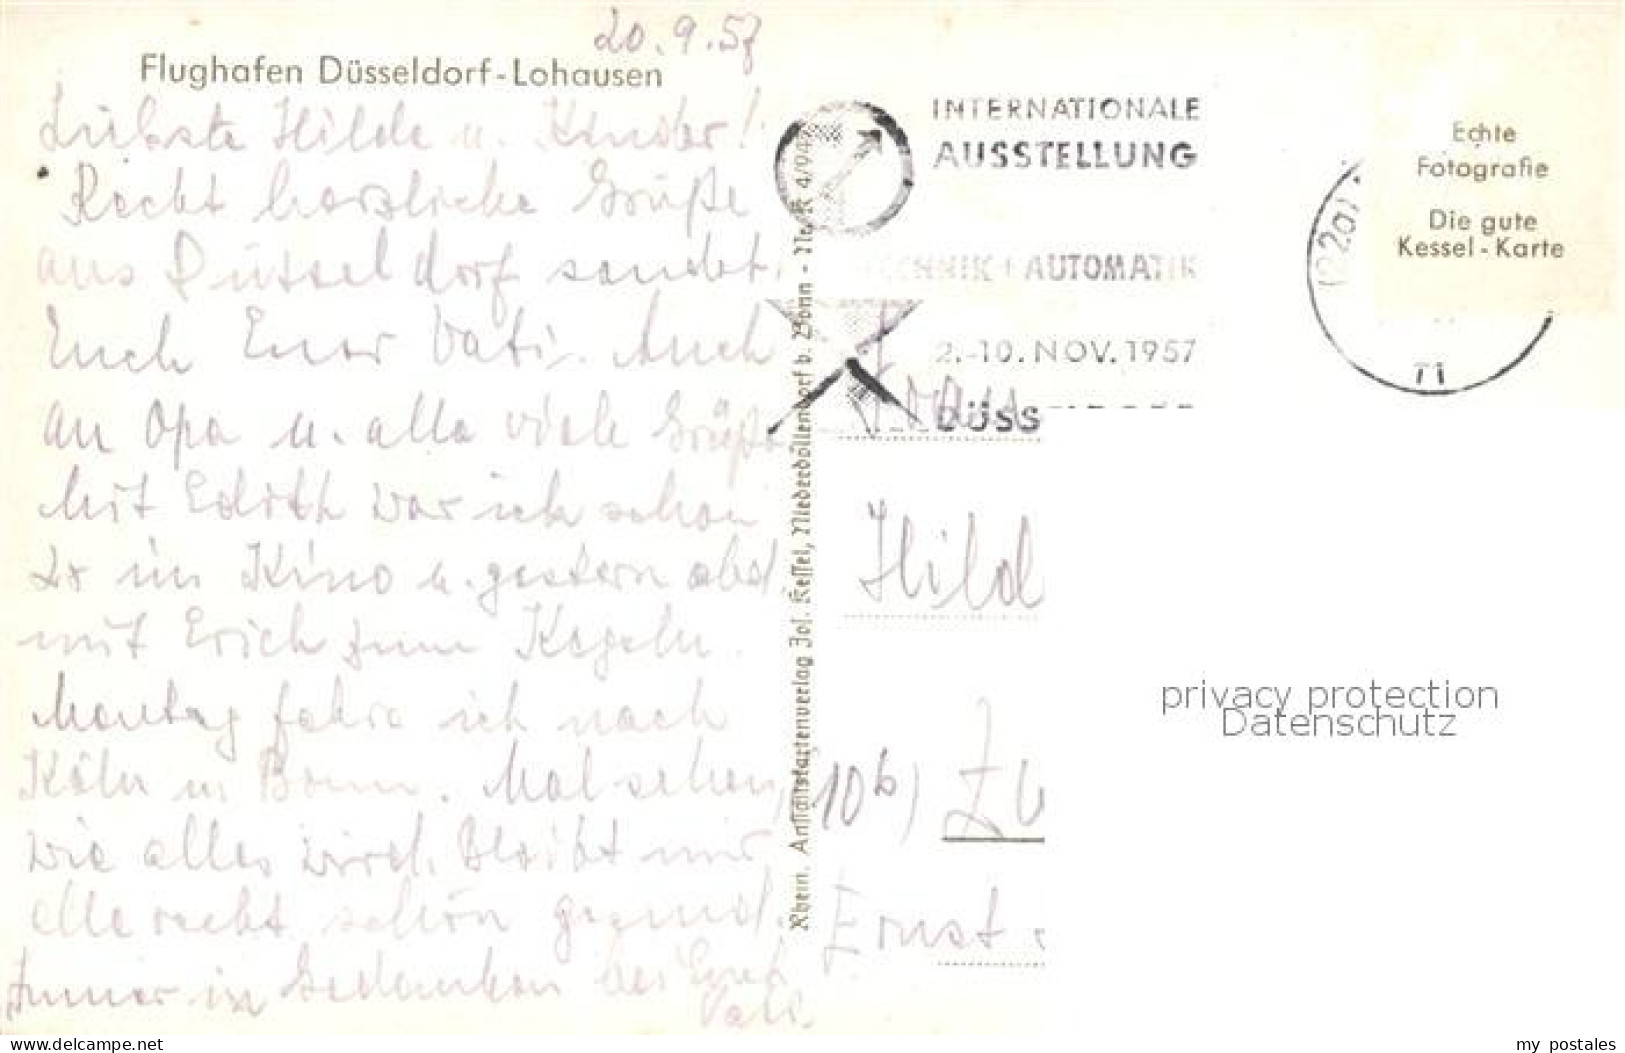 20.9.57
Flughafen Düsseldorf-Lohausen
Liebste Hilde u. Kinder!
Recht herzliche Grüße
aus Düsseldorf sendet
Euch Euer Vati. Auch
an Opa u. alle viele Grüße
Mit Edith war ich schon
2x im Kino u. gestern abd
mit Erich zum Kegeln.
Montag fahre ich nach
Köln u. Bonn. Mal sehen,
wie alles wird. Bleibt mir
alle recht schön gesund.
Immer in Gedanken bei Euch
Vati.
Rhein. Ansichtskartenverlag Jos. Kessel, Niederdollendorf b. Bonn - Ne/K 4/94
INTERNATIONALE
AUSSTELLUNG
TECHNIK + AUTOMATIK
2.-10. NOV. 1957
DÜSS
(22a)
Echte
Fotografie
Die gute
Kessel-Karte
Frau
Hild
10b) Zw
Ernst
privacy protection
Datenschutz
www.delcampe.net
my_postales